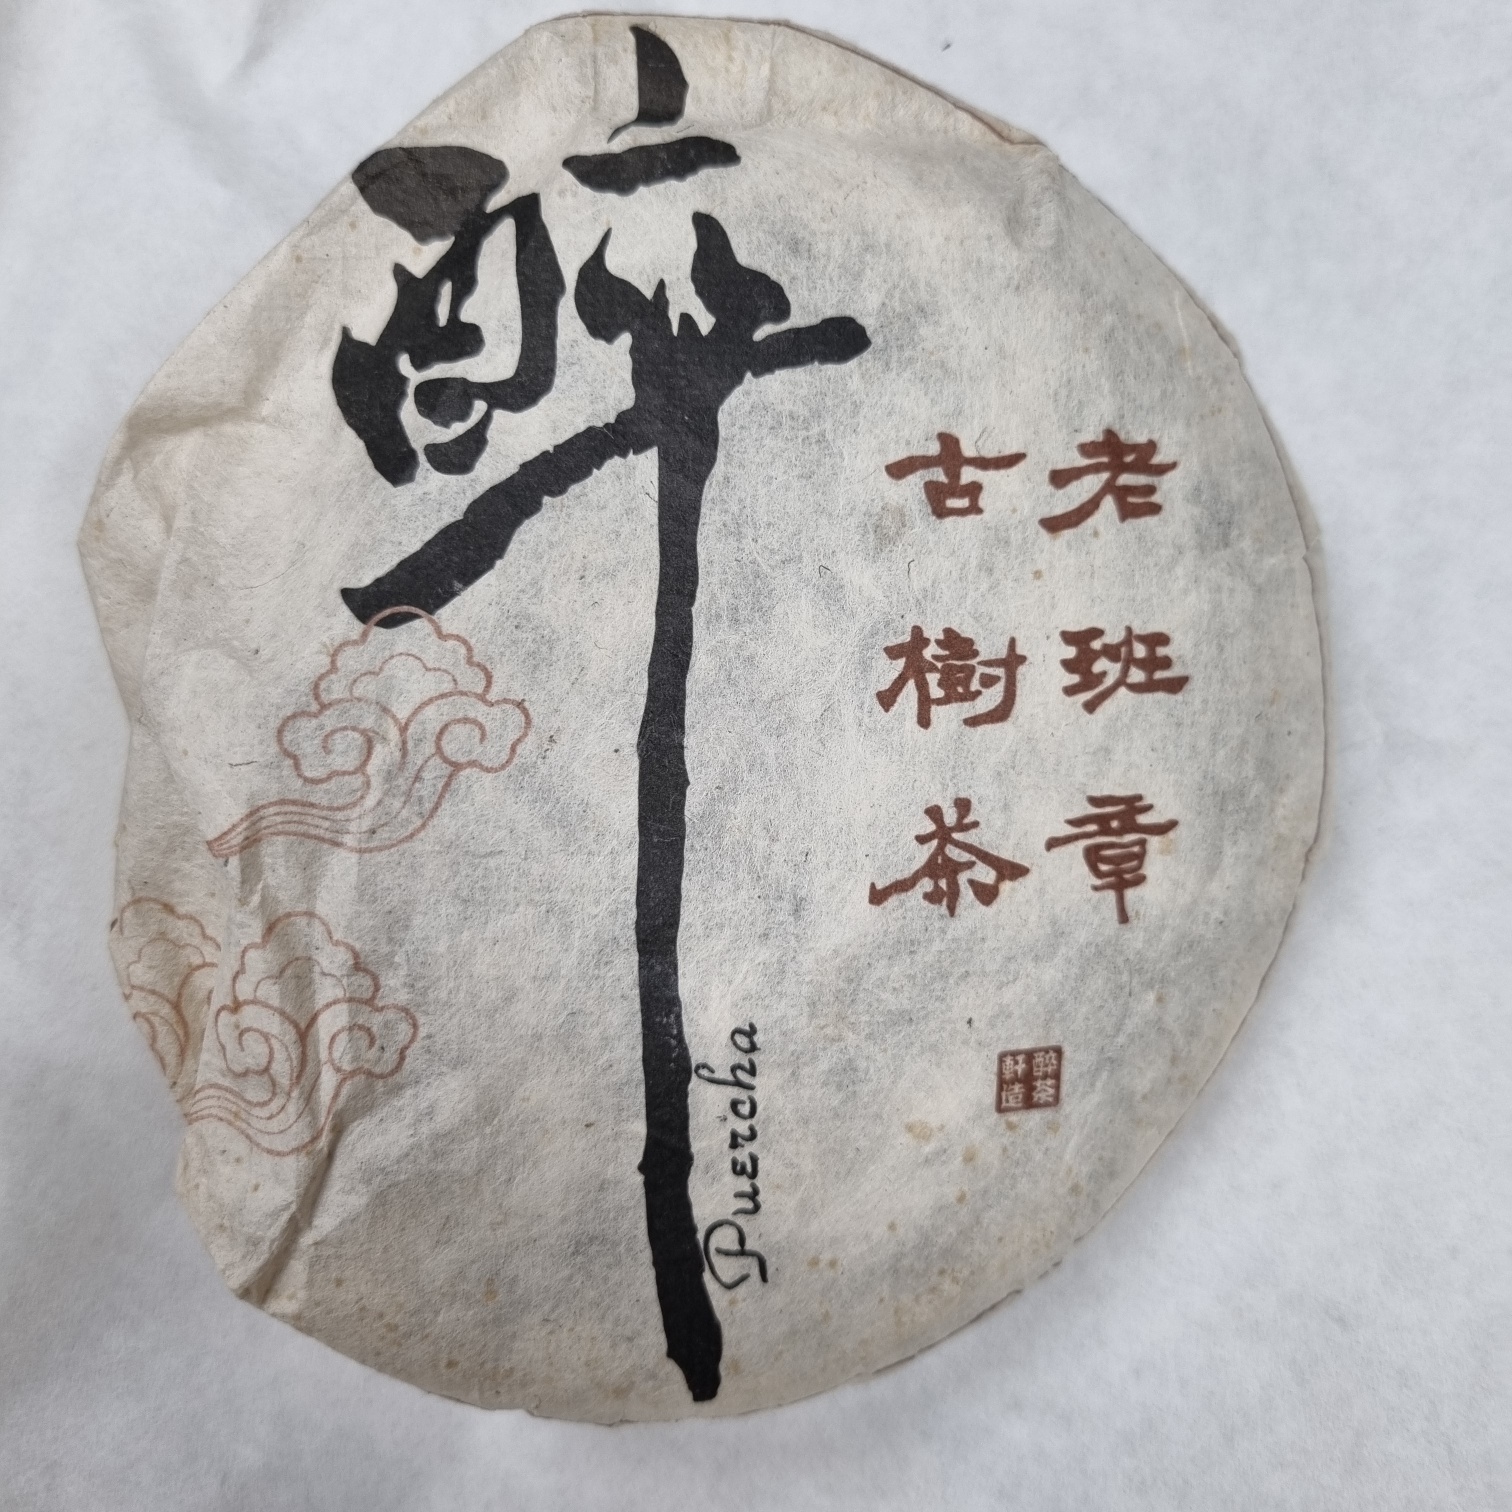 醉
老班章
古樹茶
Puercha
醉茶
軒造